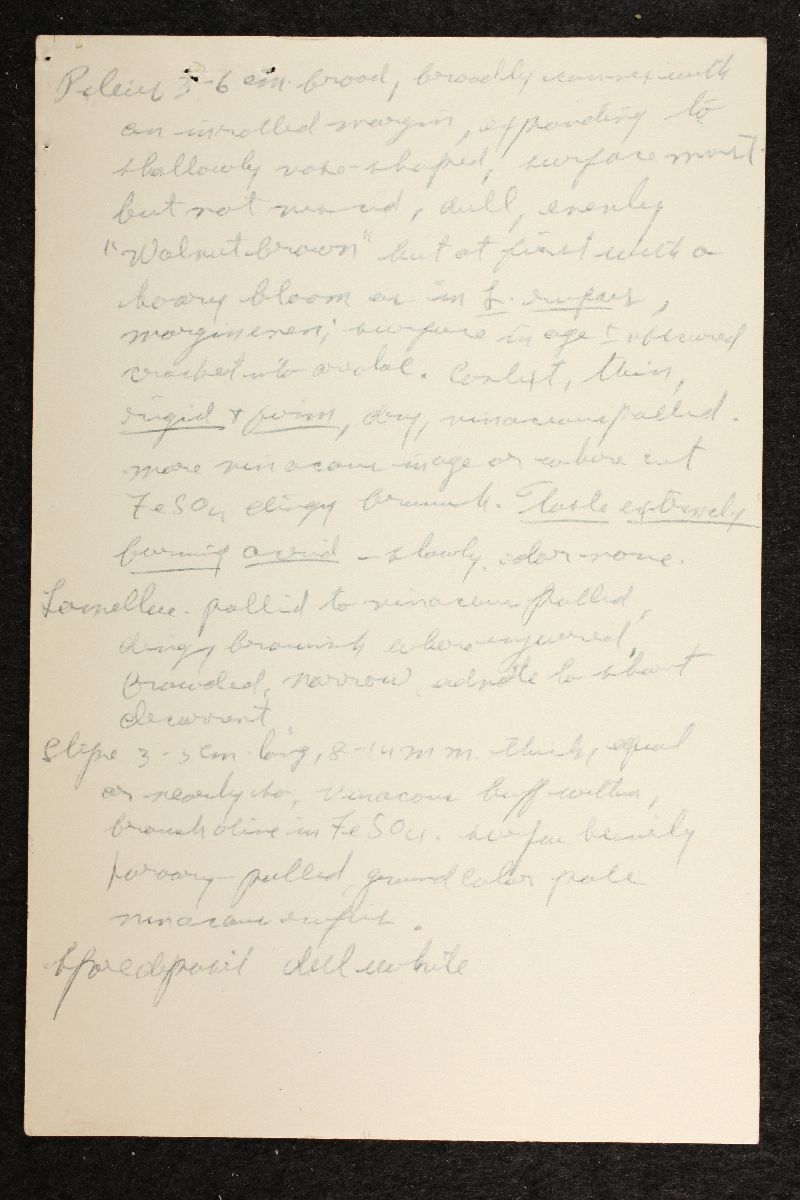 Pileus 3-6 cm. broad, broadly convex with
an inrolled margin, expanding to
shallowly vase-shaped, surface moist
but not viscid, dull, evenly
"Walnut brown" but at first with a
hoary bloom as in L. rufus,
margin even; surface in age ± obscured
cracked into areolae. Context, thin,
rigid & firm, dry, vinaceous pallid.
more vinaceous in age or where cut
FeSO4 dingy brownish. Taste extremely
burning acrid - slowly, odor none.
Lamellae. pallid to vinaceous pallid,
dingy brownish where injured,
crowded, narrow, adnate to short
decurrent
Stipe 3-5 cm long, 8-14 mm. thick, equal
or nearly so, vinaceous buff within,
brownish olive in FeSO4. surface heavily
hoary-pallid, ground color pale
vinaceous rufus.
Spore deposit dull white